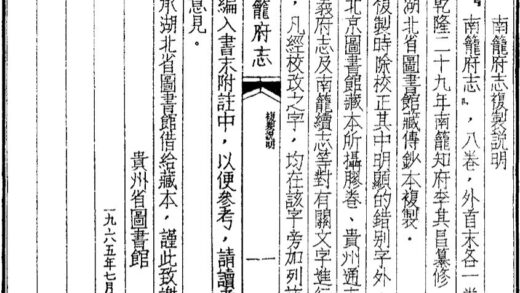 南籠府志復製說明
『南籠府志』，八卷，外首末各一
乾隆二十九年南籠知府李其昌纂修
湖北省圖書館藏傳鈔本複製．
複製時除校正其中明顯的錯別字外
北京圖書館藏本所攝膠卷、貴州通
義府志及南籠續志等對有關文字進
，凡經校改之字，均在該字旁加列
籠府志
複製說明
一
編入書末附註中，以便參考，請讀
意見．
承湖北省圖書館借給藏本，謹此致
貴州省圖書館
一九六五年七月